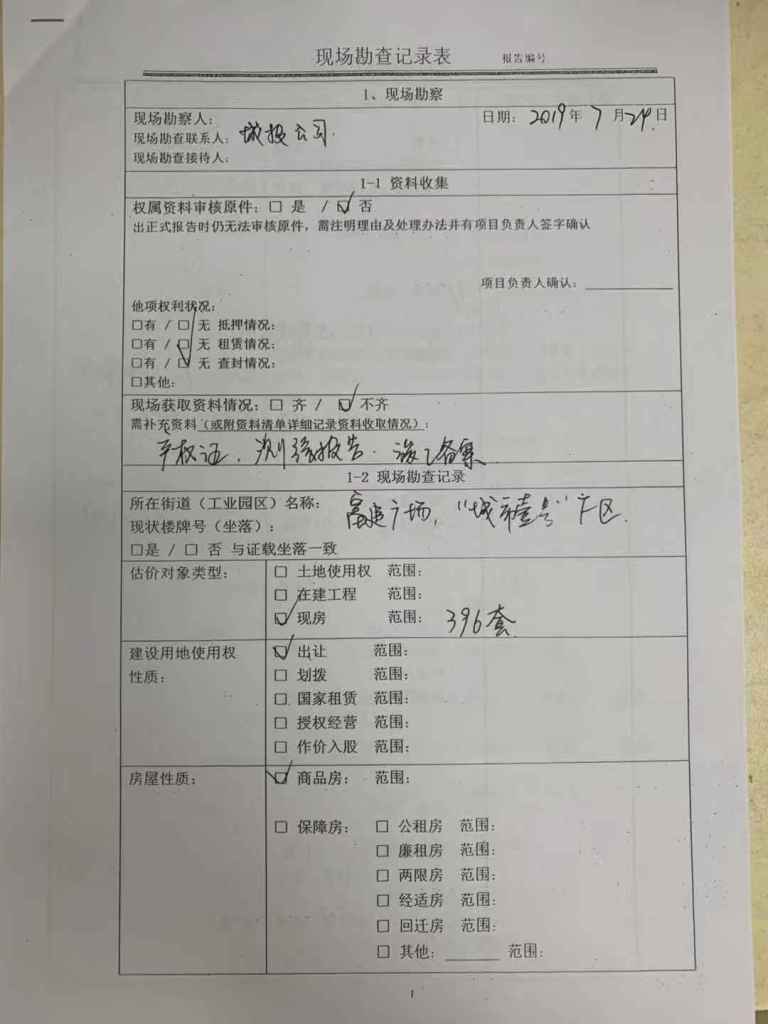 现场勘查记录表 报告编号
1、现场勘察
现场勘察人： 日期：2019年 7 月 24 日
现场勘查联系人：城投公司
现场勘查接待人：
1-1 资料收集
权属资料审核原件：□ 是 / ☑ 否
出正式报告时仍无法审核原件，需注明理由及处理办法并有项目负责人签字确认
项目负责人确认：________
他项权利状况：
□有 / ☑ 无 抵押情况：
□有 / ☑ 无 租赁情况：
□有 / ☑ 无 查封情况：
□其他：
现场获取资料情况：□ 齐 / ☑ 不齐
需补充资料（或附资料清单详细记录资料收取情况）：
产权证、测绘报告、竣工备案
1-2 现场勘查记录
所在街道（工业园区）名称：
广场，"城市壹号" 片区
现状楼牌号（坐落）：
□是 / □ 否 与证载坐落一致
估价对象类型： □ 土地使用权 范围：
□ 在建工程 范围：
☑ 现房 范围： 396套
建设用地使用权 ☑ 出让 范围：
性质： □ 划拨 范围：
□ 国家租赁 范围：
□ 授权经营 范围：
□ 作价入股 范围：
房屋性质： ☑ 商品房： 范围：
□ 保障房： □ 公租房 范围：
□ 廉租房 范围：
□ 两限房 范围：
□ 经适房 范围：
□ 回迁房 范围：
□ 其他：______ 范围：
1